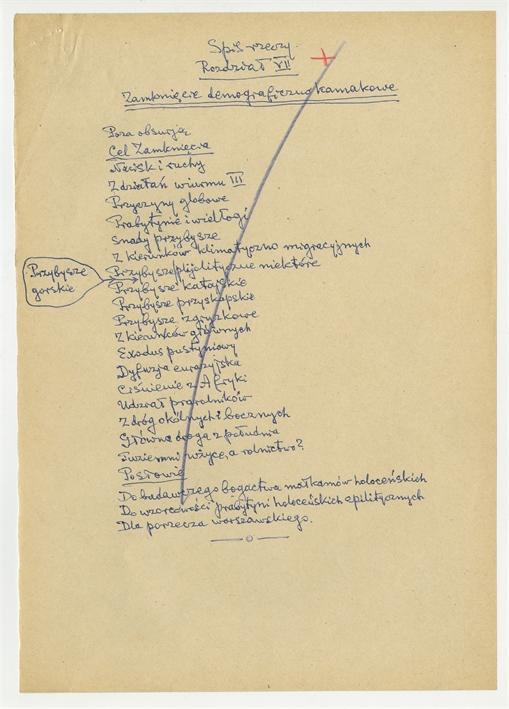 Spis rzeczy.
Rozdział VII
Zamknięcie demograficzno kamakowe
Poza obsesją
Cel Zamknięcia
Naciski i ruchy
Z działań wiurmu III
Przyczyny globowe
Prabytynie i wielłogi
snady przybysze
Z kierunków klimatyczno migracyjnych
Przybysze
gorskie
Przybysze plejolityczne niektóre
Przybysze kałajskie
Przybysze przyskapskie
Przybysze zgryzkowe
Z kierunków głównych
Exodus pustyniowy
Dyfuzja eurazyjska
Ciśnienie z Afryki
Udział prarolników
Z dróg okólnych i bocznych
Główna droga z południa
Tuziemni wżyce, a rolnictwo?
Posłowie
Do badawczego bogactwa małkamów holoceńskich
Do wzorcowości prabytyni holoceńskich epilitycznych
Dla porzecza warszawskiego.